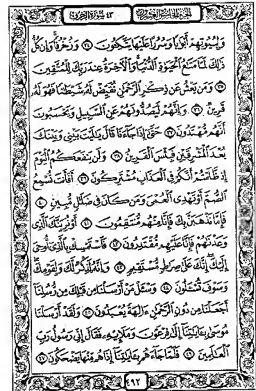 ٤٣ سورة الزخرف
وَلِبُيُوتِهِمْ أَبْوَابًا وَسُرُرًا عَلَيْهَا يَتَّكِئُونَ ٣٤ وَزُخْرُفًا وَإِن كُلُّ
ذَٰلِكَ لَمَّا مَتَاعُ الْحَيَاةِ الدُّنْيَا وَالْآخِرَةُ عِندَ رَبِّكَ لِلْمُتَّقِينَ
٣٥ وَمَن يَعْشُ عَن ذِكْرِ الرَّحْمَٰنِ نُقَيِّضْ لَهُ شَيْطَانًا فَهُوَ لَهُ
قَرِينٌ ٣٦ وَإِنَّهُمْ لَيَصُدُّونَهُمْ عَنِ السَّبِيلِ وَيَحْسَبُونَ
أَنَّهُم مُّهْتَدُونَ ٣٧ حَتَّىٰ إِذَا جَاءَنَا قَالَ يَا لَيْتَ بَيْنِي وَبَيْنَكَ
بُعْدَ الْمَشْرِقَيْنِ فَبِئْسَ الْقَرِينُ ٣٨ وَلَن يَنفَعَكُمُ الْيَوْمَ
إِذ ظَّلَمْتُمْ أَنَّكُمْ فِي الْعَذَابِ مُشْتَرِكُونَ ٣٩ أَفَأَنتَ تُسْمِعُ
الصُّمَّ أَوْ تَهْدِي الْعُمْيَ وَمَن كَانَ فِي ضَلَالٍ مُّبِينٍ ٤٠
فَإِمَّا نَذْهَبَنَّ بِكَ فَإِنَّا مِنْهُم مُّنتَقِمُونَ ٤١ أَوْ نُرِيَنَّكَ الَّذِي
وَعَدْنَاهُمْ فَإِنَّا عَلَيْهِم مُّقْتَدِرُونَ ٤٢ فَاسْتَمْسِكْ بِالَّذِي أُوحِيَ
إِلَيْكَ إِنَّكَ عَلَىٰ صِرَاطٍ مُّسْتَقِيمٍ ٤٣ وَإِنَّهُ لَذِكْرٌ لَّكَ وَلِقَوْمِكَ
وَسَوْفَ تُسْأَلُونَ ٤٤ وَسْئَلْ مَنْ أَرْسَلْنَا مِن قَبْلِكَ مِن رُّسُلِنَا
أَجَعَلْنَا مِن دُونِ الرَّحْمَٰنِ آلِهَةً يُعْبَدُونَ ٤٥ وَلَقَدْ أَرْسَلْنَا
مُوسَىٰ بِآيَاتِنَا إِلَىٰ فِرْعَوْنَ وَمَلَإِيْهِ فَقَالَ إِنِّي رَسُولُ رَبِّ
الْعَالَمِينَ ٤٦ فَلَمَّا جَاءَهُم بِآيَاتِنَا إِذَا هُم مِّنْهَا يَضْحَكُونَ ٤٧
٤٩٢